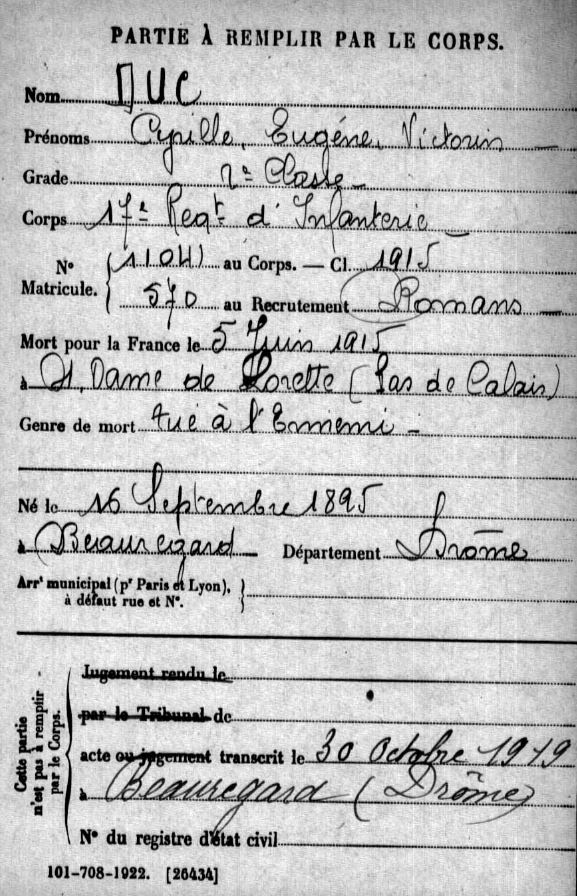 PARTIE À REMPLIR PAR LE CORPS.
Nom DUC
Prénoms Cyrille, Eugène, Victorin
Grade 2e Classe
Corps 17e Regt d'Infanterie
No 11041 au Corps. — Cl. 1915
Matricule. 570 au Recrutement Romans
Mort pour la France le 5 Juin 1915
à N. Dame de Lorette (Pas de Calais)
Genre de mort tué à l'Ennemi
Né le 16 Septembre 1895
à Beauregard Département Drôme
Arrt municipal (pr Paris et Lyon),
à défaut rue et No.
Cette partie n'est pas à remplir par le Corps.
Jugement rendu le
par le Tribunal de
acte ou jugement transcrit le 30 Octobre 1919
à Beauregard (Drôme)
No du registre d'état civil
101-708-1922. [26434]